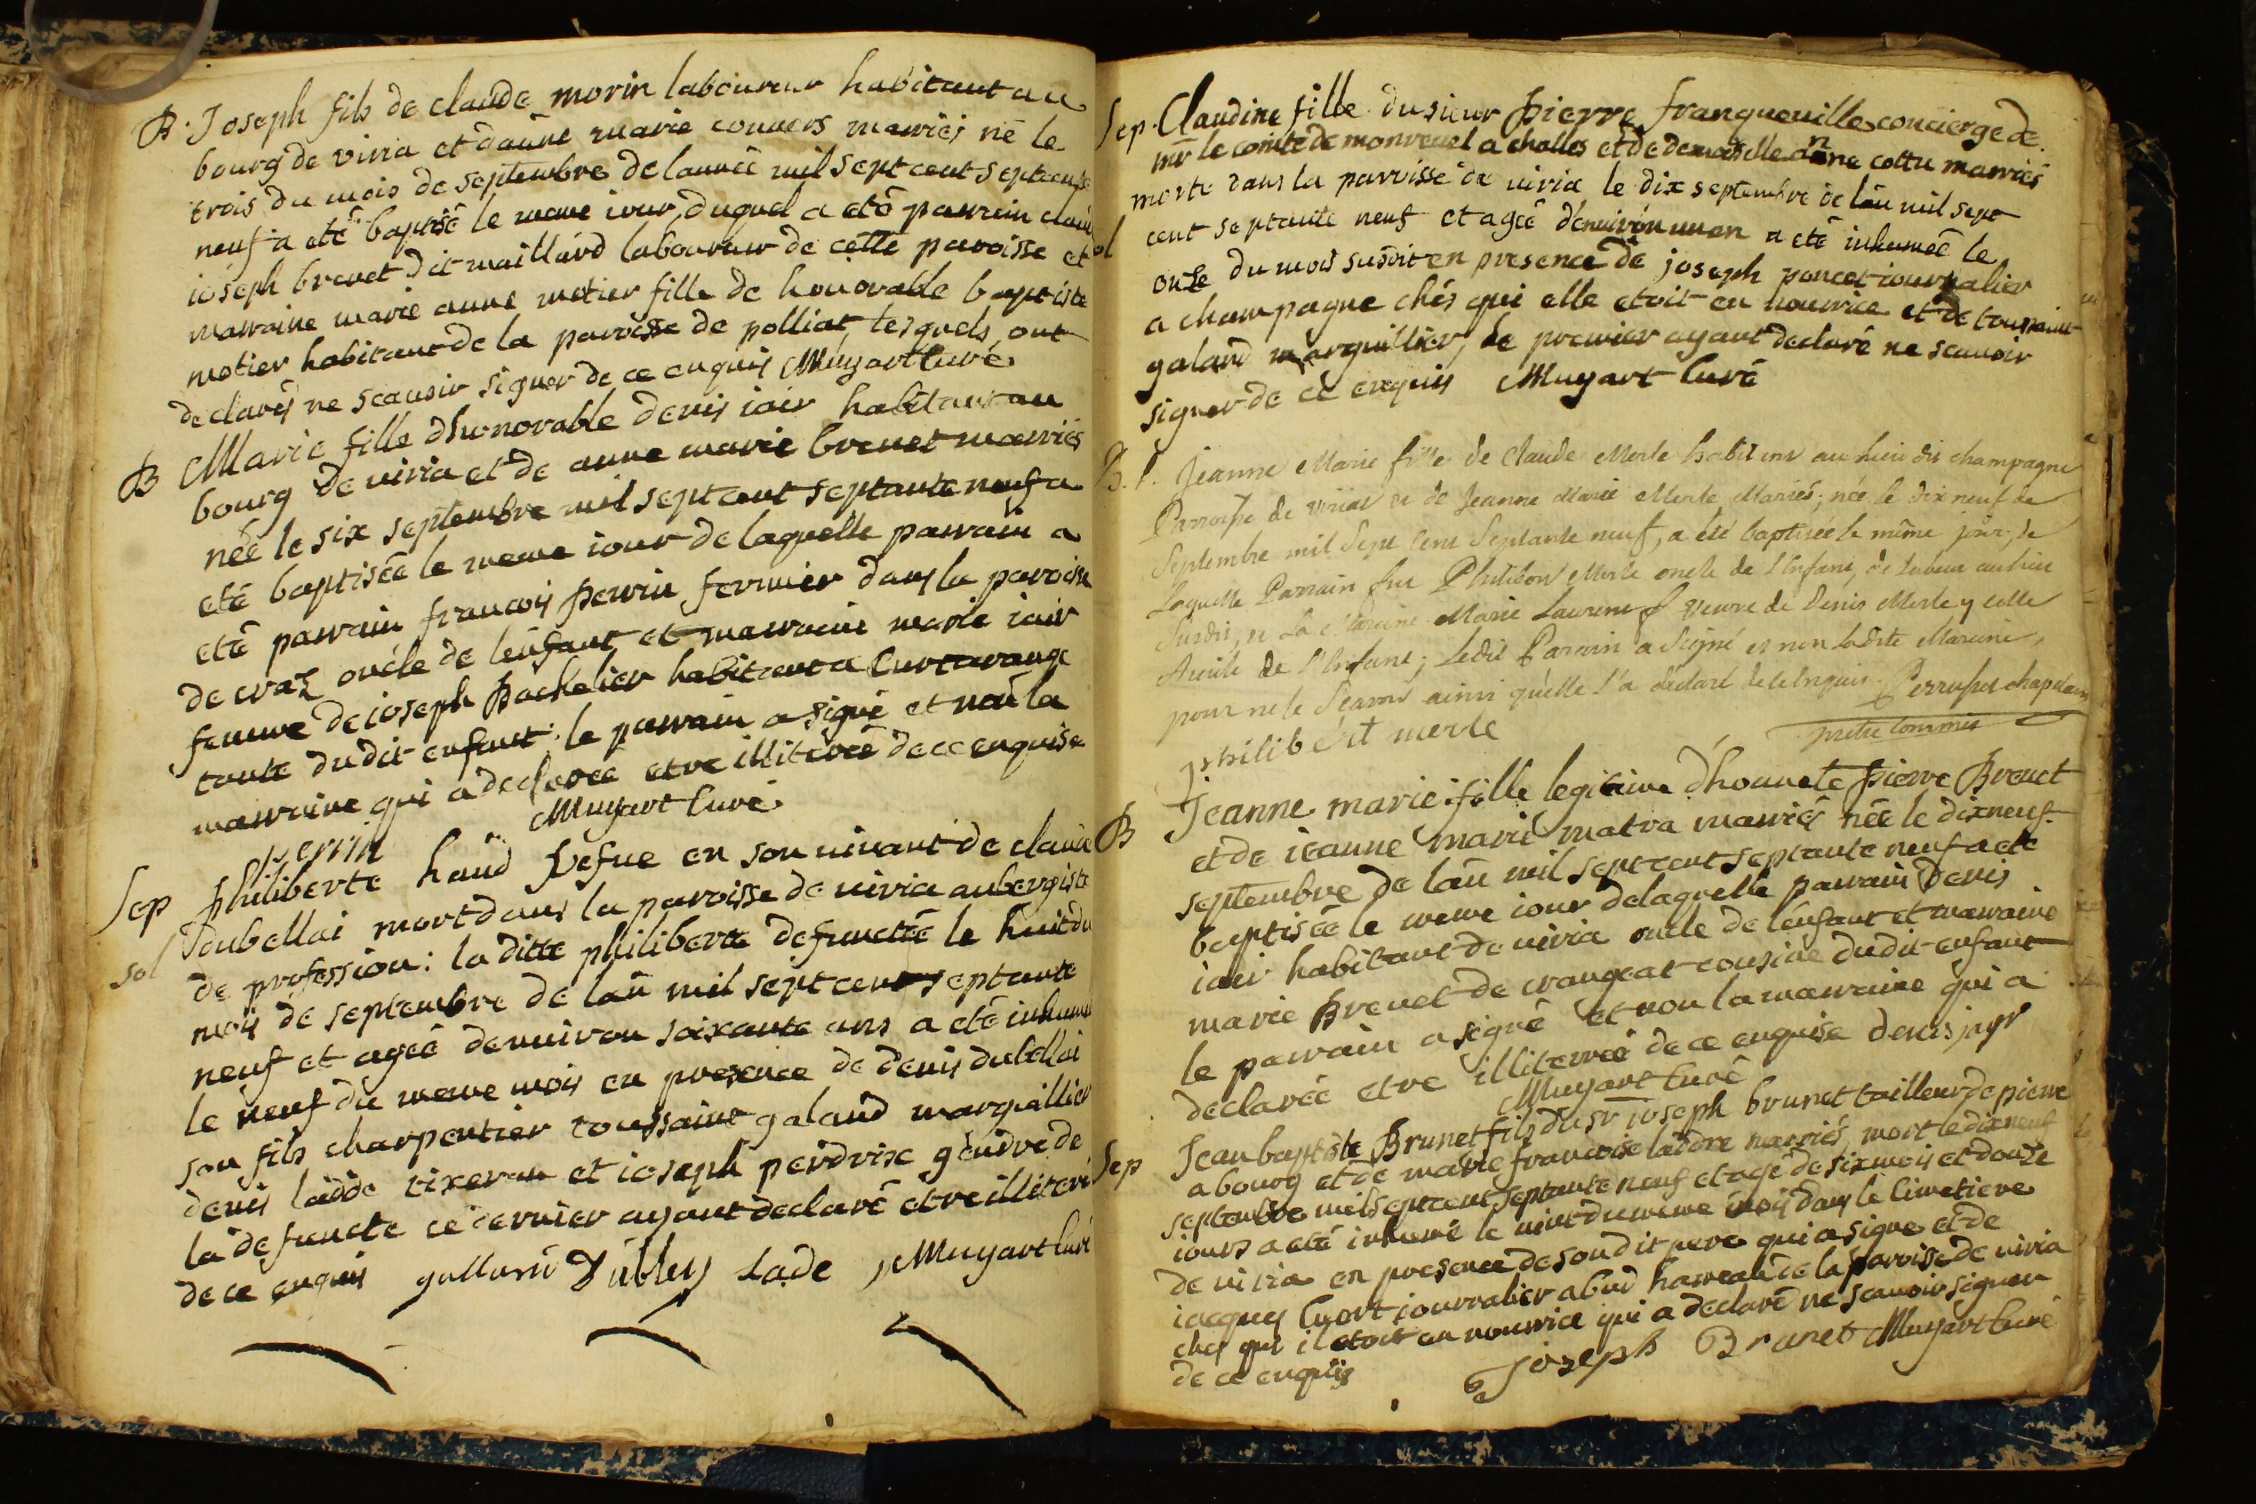 B. Joseph fils de claude morin laboureur habitant au
bourg de viria et danne marie convers mariés né le
trois du mois de septembre de lannée mil sept cent septente
neuf a eté baptisé le meme iour duquel a eté parrain claude
ioseph brevet dit maillard laboureur de cette paroisse et
marraine marie anne motier fille de honorable baptiste
motier habitant de la paroisse de polliat, lesquels ont
declarés ne scauoir signer de ce enquis Muyart Curé
B Marie fille dhonorable denis iair habitant au
bourg de viria et de anne marie brevet mariés
née le six septembre mil sept cent septante neuf a
eté baptisée le meme iour de laquelle parrain a
eté parrain francois perrin fermier dans la paroisse
de craz oncle de lenfant et marraine marie iair
femme de ioseph bachelier habitant a Curtarange
tante dudit enfant. le parrain a signé et non la
marraine qui a declaree etre illiterée de ce enquise
perrin Muyart Curé
Sep philiberte haud vefue en son uiuant de claude
sol Doubellai mort dans la paroisse de uiria aubergiste
de profession: la ditte philiberte defunctée le huit du
mois de septembre de lan mil sept cent septante
neuf et ageé denuiron soixante ans a eté inhumée
le neuf du meme mois en presence de denis dubellai
son fils charpentier toussaint galand marguillier
denis ladde tixeran et ioseph perdrix gendre de
la defuncte ce dernier ayant declaré etre illiteré
de ce enquis galland Dubley Lade Muyart Curé
Sep. Claudine fille du sieur pierre franqueuille concierge de
mr le comte de monreuel a challes et de demoiselle anne cottu mariés
morte dans la paroisse de uiria le dix septembre de lan mil sept
cent septante neuf et ageé denuiron un an a eté inhumeé le
onze du mois susdit en presence de joseph poncet iournalier
a champagne chés qui elle etoit en nourrice et de toussaint
galand marguillier, le premier ayant declaré ne scauoir
signer de ce enquis Muyart Curé
B. Jeanne Marie fille de Claude Merle habitant au lieu dit champagne
Parroisse de viriat et de Jeanne Marie Merle Mariés; née le dix neuf de
Septembre mil Sept Cent Septante neuf, a été baptisée le même jour, de
Laquelle Parrain fut Philibert Merle oncle de l'Enfant, de Labeur au lieu
Susdit, et La Maraine Marie Laurent veuve de Denis Merle
de l'Enfant; Ledit Parrain a Signé et non Ladite Maraine,
pour ne le Scavoir ainsi qu'elle l'a déclaré de ce Enquis. chapelain
philibért merle prêtre commis
B Jeanne marie fille legitime dhonnete pierre Brevet
et de ieanne marie matra mariés née le dixneuf
septembre de lan mil sept cent septante neuf a eté
baptisée le meme iour de laquelle parrain Denis
iair habitant de uiria oncle de lenfant et marraine
marie Brevet de crangeat cousine dudit enfant
le parrain a signé et non la marraine qui a
declareé etre illiterreé de ce enquise denis jayr
Muyart Curé
Sep Jean baptiste Brunet fils du sr ioseph brunet tailleur de pierre
a bourg et de marie francoise ladore mariés, mort le dixneuf
septembre mil sept cent septante neuf et agé de six mois et douze
iours a eté inhumé le uint du meme mois dans le Cimetiere
de uiria en presence de son dit pere qui a signé et de
iacques Cuort iournalier a bud hameau de la paroisse de uiria
chés qui il etoit en nourrice qui a declaré ne scauoir signer
de ce enquis Joseph Brunet Muyart Curé